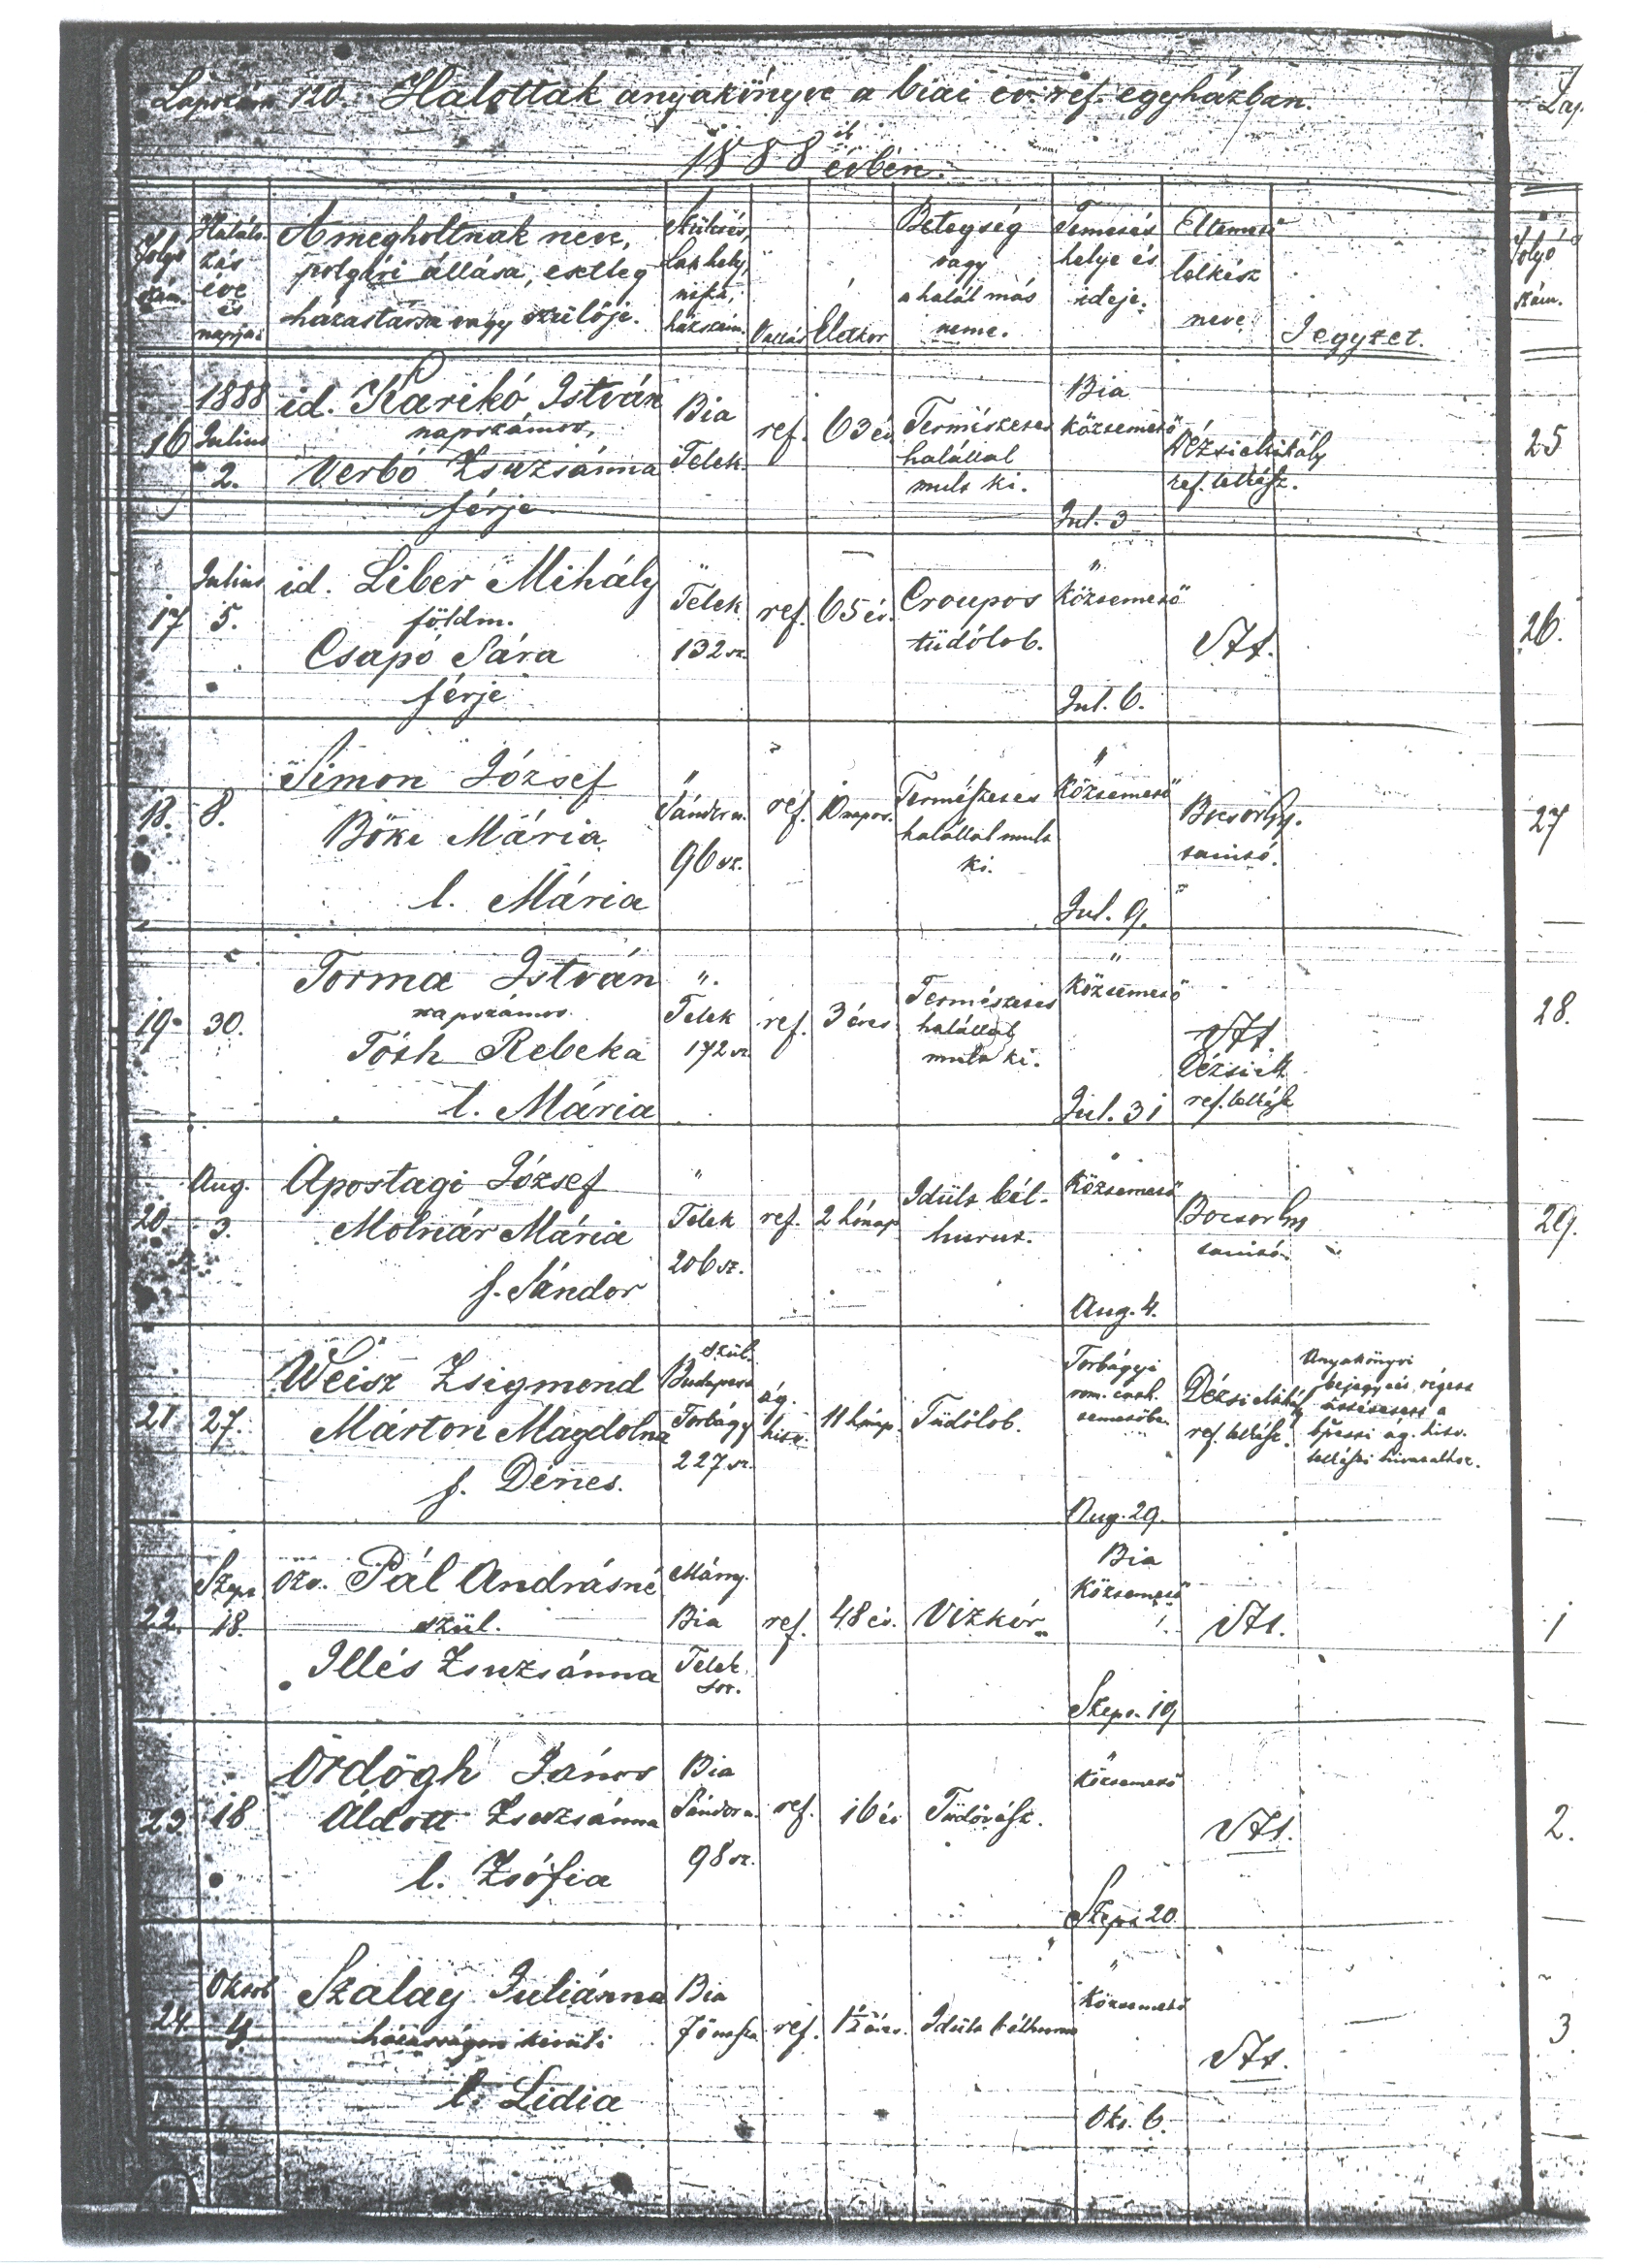 Lapszám 120. Halottak anyakönyve a biai ev. ref. egyházban.
1888ik évben.
Folyó szám.
Halálozás éve és napja.
A megholtnak neve,
polgári állása, esetleg
házastársa vagy szülője.
Lakhely,
házszám.
Vallás
Életkor
Betegség
vagy
a halál más
neme.
Temetés
helye és
ideje.
Eltemető
lelkész
neve
Jegyzet.
16
1888
Julius
2.
id. Karikó István
napszámos,
Verbó Zsuzsánna
férje
Bia
Telek
ref.
63 év
Természetes
halállal
mult ki.
Bia
köztemető
Jul. 3
Dézsi Mihály
ref. lelkész.
17
Julius
5.
id. Liber Mihály
földm.
Csapó Sára
férje
"
Telek
132 sz.
ref.
65 év.
Croupos
tüdőlob.
"
Köztemető
Jul. 6.
Att.
18.
8.
Simon József
Böke Mária
l. Mária
"
Sándor u.
96 sz.
ref.
10 napos.
Természetes
halállal mult
ki.
"
Köztemető
Jul. 9.
Bocsor Gy.
tanitó.
19.
30.
Torma István
napszámos.
Tóth Rebeka
l. Mária
".
Telek
172 sz.
ref.
3 éves
Természetes
halállal
mult ki.
"
Köztemető
Jul. 31
Att.
Dézsi M.
ref. lelkész
20.
Aug.
3.
Apostagi József
Molnár Mária
f. Sándor
"
Telek
206 sz.
ref.
2 hónap
Idült bél-
hurut.
"
Köztemető
Aug. 4.
Bocsor Gy
tanitó.
21
27.
Weisz Zsigmond
Márton Magdolna
f. Dénes.
szül.
Budapest
Torbágy
227 sz.
ág.
hitv.
11 hónap.
Tüdőlob.
Torbágyi
rom. cath.
temetőben
Aug. 29.
Dézsi Mihály
ref. lelkész.
Anyakönyvi
bejegyzés végett
áttétetett a
bpesti ág. hitv.
lelkészi hivatalhoz.
22.
Szept
18.
özv. Pál Andrásné
szül.
Illés Zsuzsánna
Mány.
Bia
Telek
sor.
ref.
48 év.
Vizkór.
Bia
Köztemető
Szept. 19
Att.
23
18
Ördögh János
Áldott Zsuzsánna
l. Zsófia
Bia
Sándor u.
98 sz.
ref.
16 év
Tüdővész.
"
Köztemető
Szept 20.
Att.
24.
Oktob
4
Szalay Juliánna
házasságon kivüli
l. Lidia
Bia
Fő utcza
ref.
1½ éves.
Idült bélhurut
"
Köztemető
Okt. 6.
Att.
Lap.
Folyó
szám.
25
26.
27
28.
29.
1
2.
3